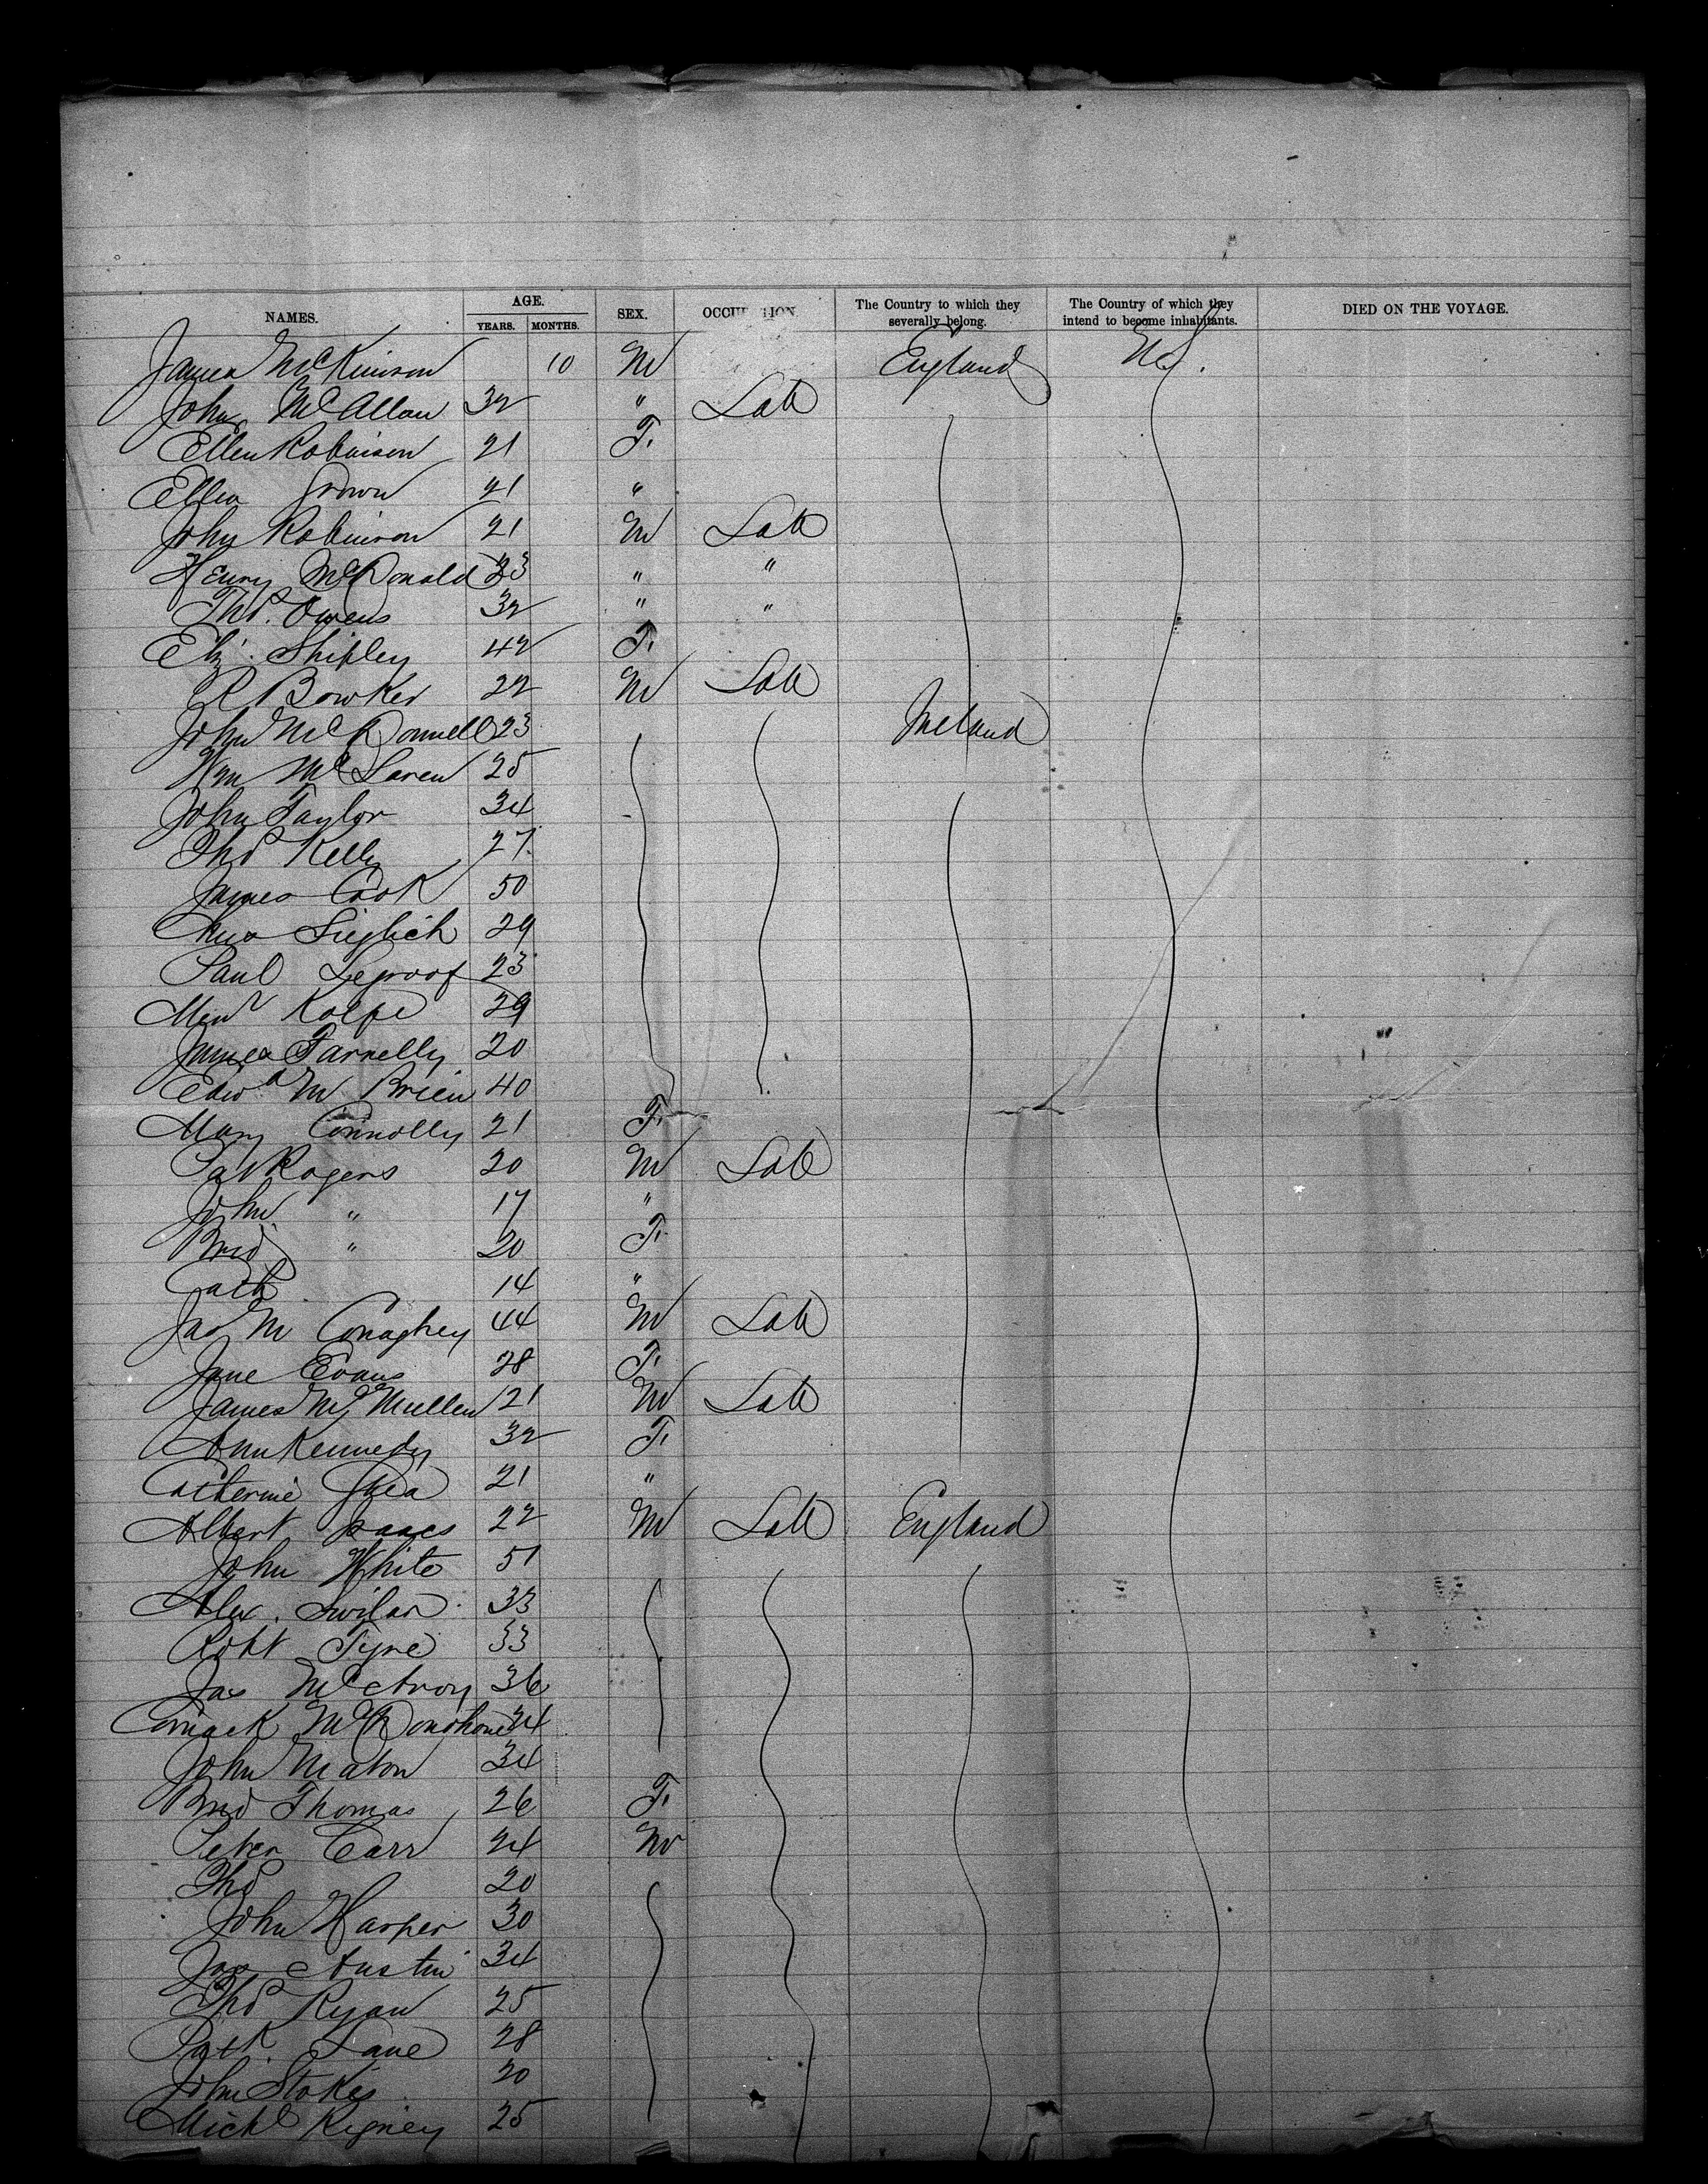 NAMES. AGE. YEARS. MONTHS. SEX. OCCUPATION The Country to which they severally belong. The Country of which they intend to become inhabitants. DIED ON THE VOYAGE.
James McKinison 10 M England U.S.
John McAllan 32 " Lab
Ellen Robinson 21 F.
Ellen Brown 21 "
John Robinson 21 M Lab
Henry McDonald 33 " "
Thos. Owens 32 " "
Eliz. Shipley 42 F.
R Bowker 22 M Lab
John McDonnell 23 Ireland
Wm McLaren 25
John Taylor 34
Thos Kelly 27
James Cook 50
Sieglich 29
Paul Legroof 23
Rolfe 29
James Farrelly 20
Edwd M Brien 40
Mary Connolly 21 F.
Pat Rogers 20 M Lab
John " 17 "
Brid " 20 F.
Cath 14 "
Jas M Conaghey 44 M Lab
Jane Evans 28 F.
James Mc Mullen 21 M Lab
Ann Kennedy 32 F.
Catherine Shea 21 "
Albert Isaacs 22 M Lab England
John White 51
Alex. 33
Robt Tyre 33
Jas McAvoy 36
Cormack McDonohoue 34
John Maton 34
Brid Thomas 26 F.
Peter Carr 24 M
Thos 20
John Harper 30
Jas Austin 34
Thos Ryan 25
Patk. Lane 28
John Stokes 20
Michl Rigney 25